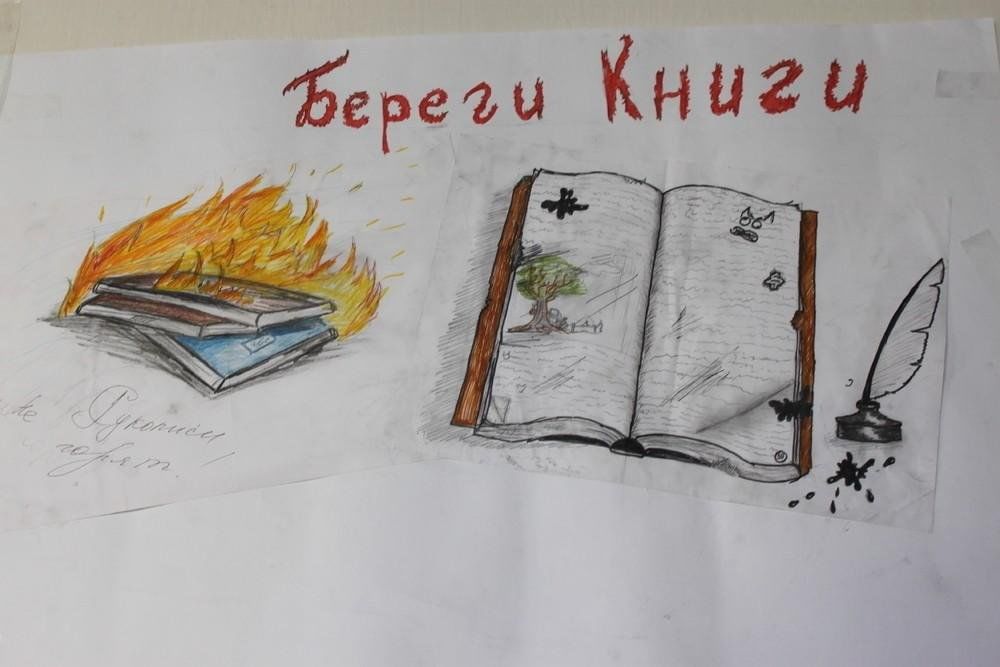 Береги Книги
Не Рукописи
горят!